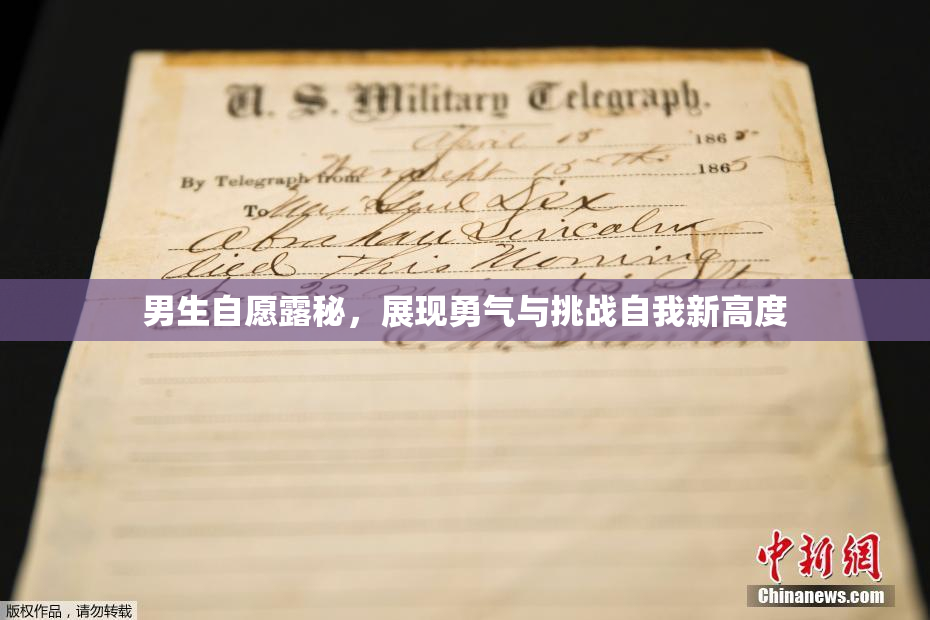 U. S. Military Telegraph.
April 15 1865
By Telegraph from War Dept 15th 1865
To Maj Genl Dix
Abraham Lincoln
died This Morning
at 22 minutes after
男生自愿露秘，展现勇气与挑战自我新高度
E. M. Stanton
中新网
Chinanews.com
版权作品，请勿转载